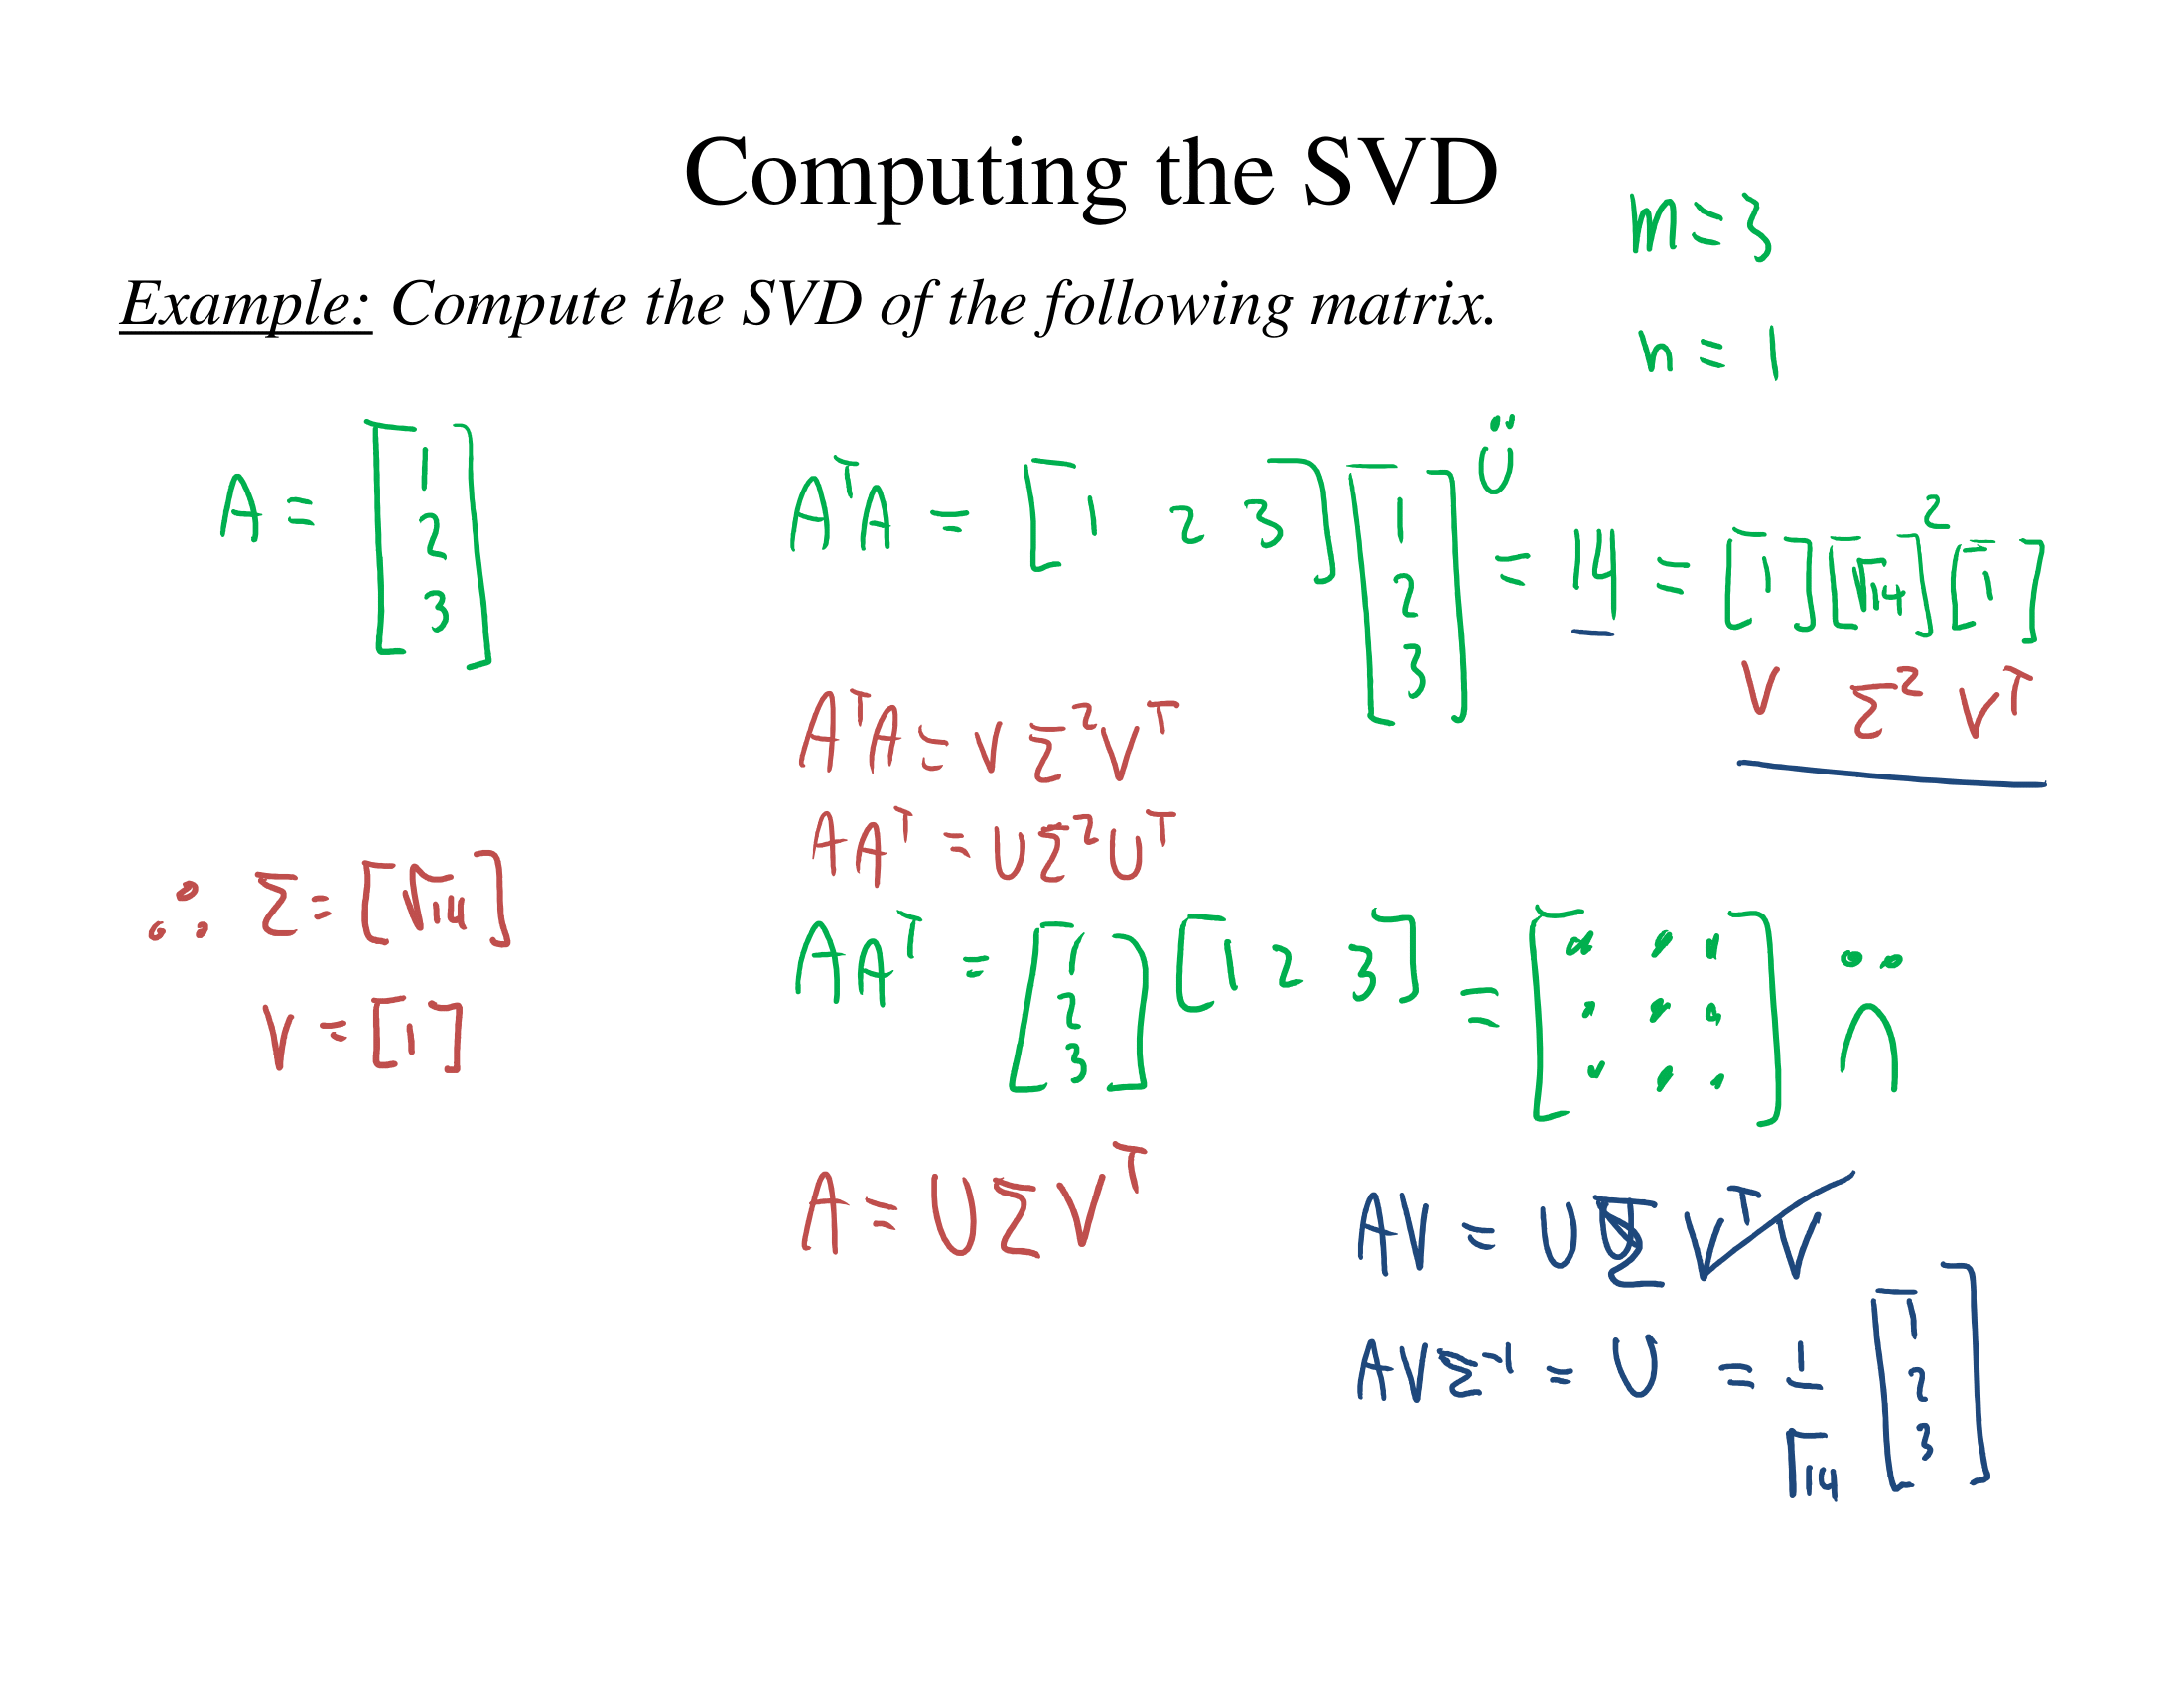 Computing the SVD
m = 3
Example: Compute the SVD of the following matrix.
n = 1
A = [1 2 3]
AᵀA = [1 2 3] [1 2 3] = 14 = [1] [√14]² [1]
V Σ² Vᵀ
AᵀA = V Σ² Vᵀ
AAᵀ = U Σ² Uᵀ
∴ Σ = [√14]
AAᵀ = [1 2 3] [1 2 3] = [. . . . . . . . .]
V = [1]
A = U Σ Vᵀ
AV = U Σ Vᵀ V
AV Σ⁻¹ = U = 1/√14 [1 2 3]